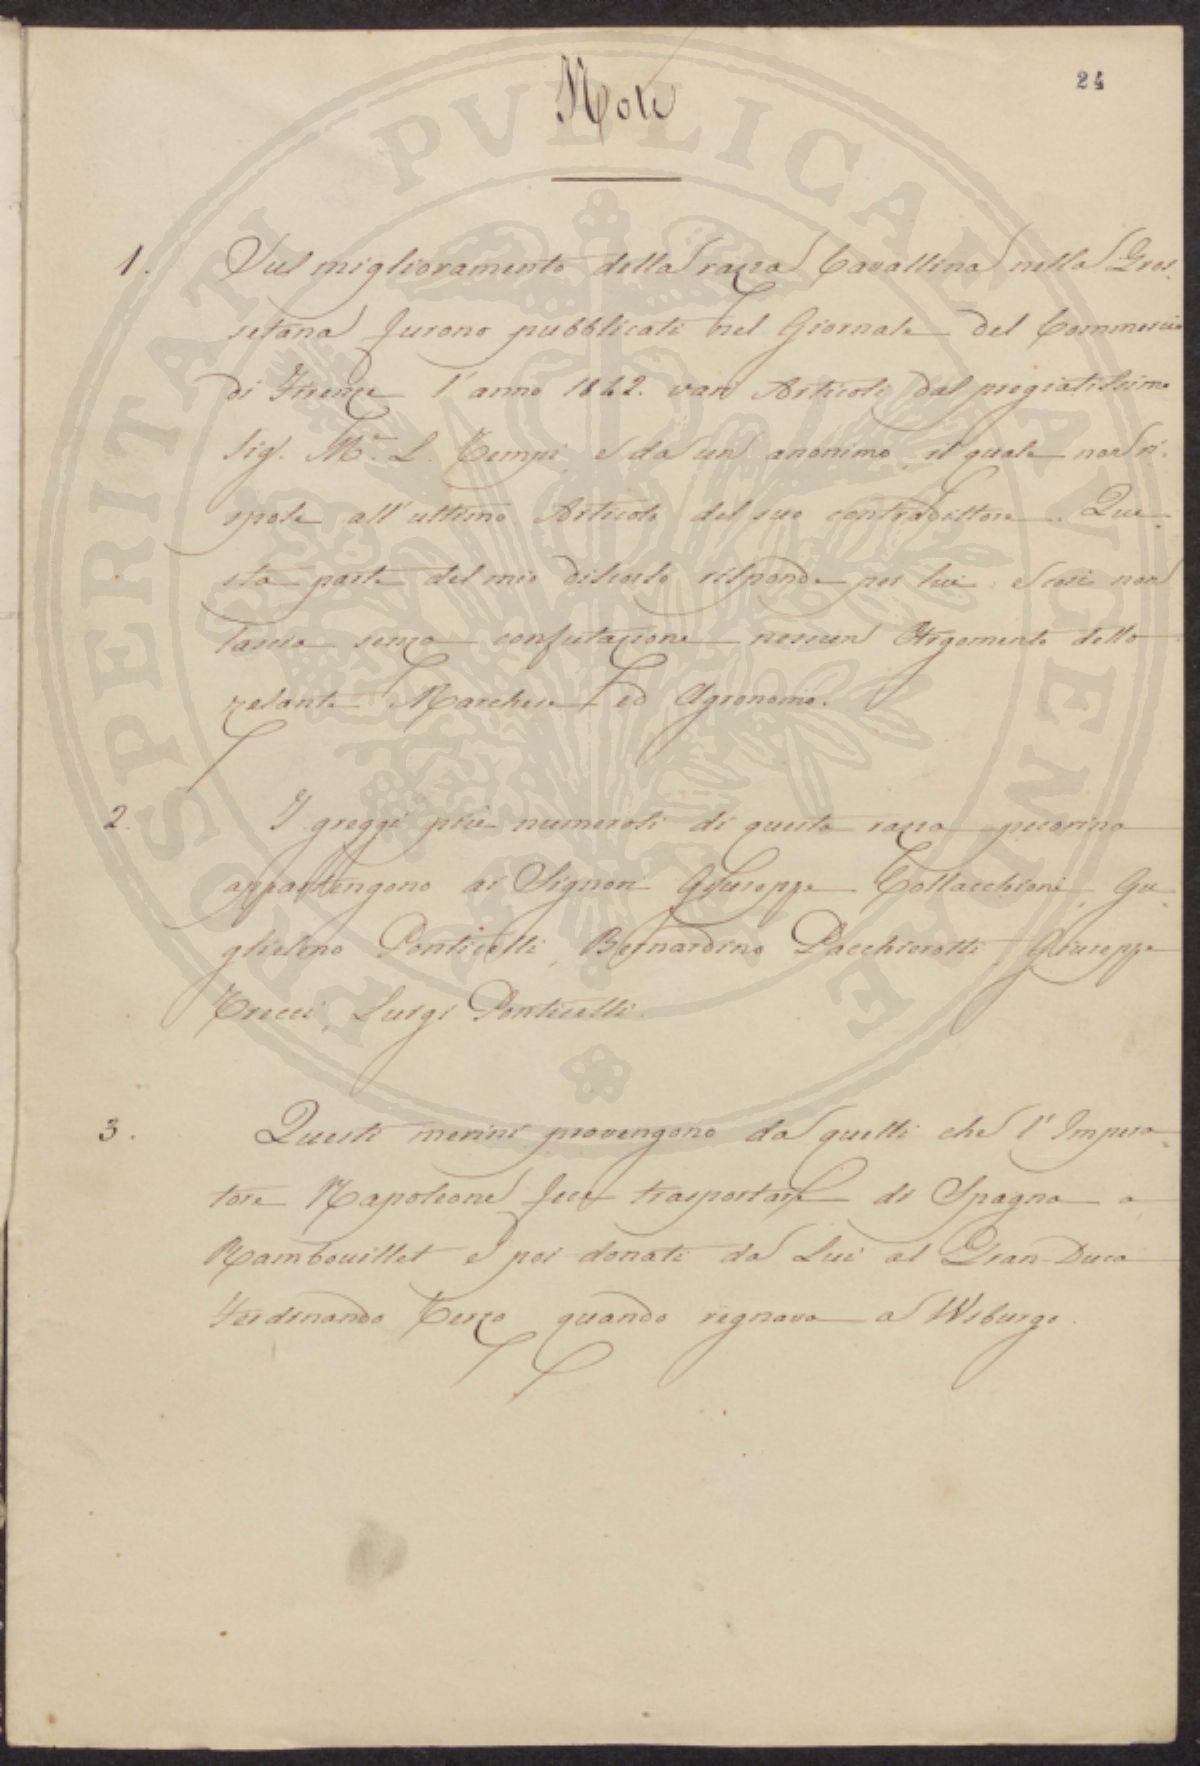 24
Note
1. Sul miglioramento della razza Cavallina nella Gros-
setana furono pubblicati nel Giornale del Commercio
di Firenze l'anno 1842. vari Articoli dal pregiatissimo
Sig. M.e L. Tempi, e da un anonimo, il quale non ri-
spose all'ultimo Articolo del suo contradittore. Que-
sta parte del mio discorso risponde per lui: e così non
lascio senza confutazione nessun Argomento dello
zelante Marchese ed Agronomo.
2. I greggi più numerosi di questa razza pecorina
appartengono ai Signori Giuseppe Collacchioni, Gu-
glielmo Ponticelli, Bernardino Pacchiarotti, Giuseppe
Cricci, Luigi Ponticelli.
3. Questi merini provengono da quelli che l'Impera-
tore Napoleone fece trasportare di Spagna a
Rambouillet e poi donati da Lui al Gran-Duca
Ferdinando Terzo quando regnava a Wsburgo.
PROSPERITATI PUBLICAE AUGENDAE